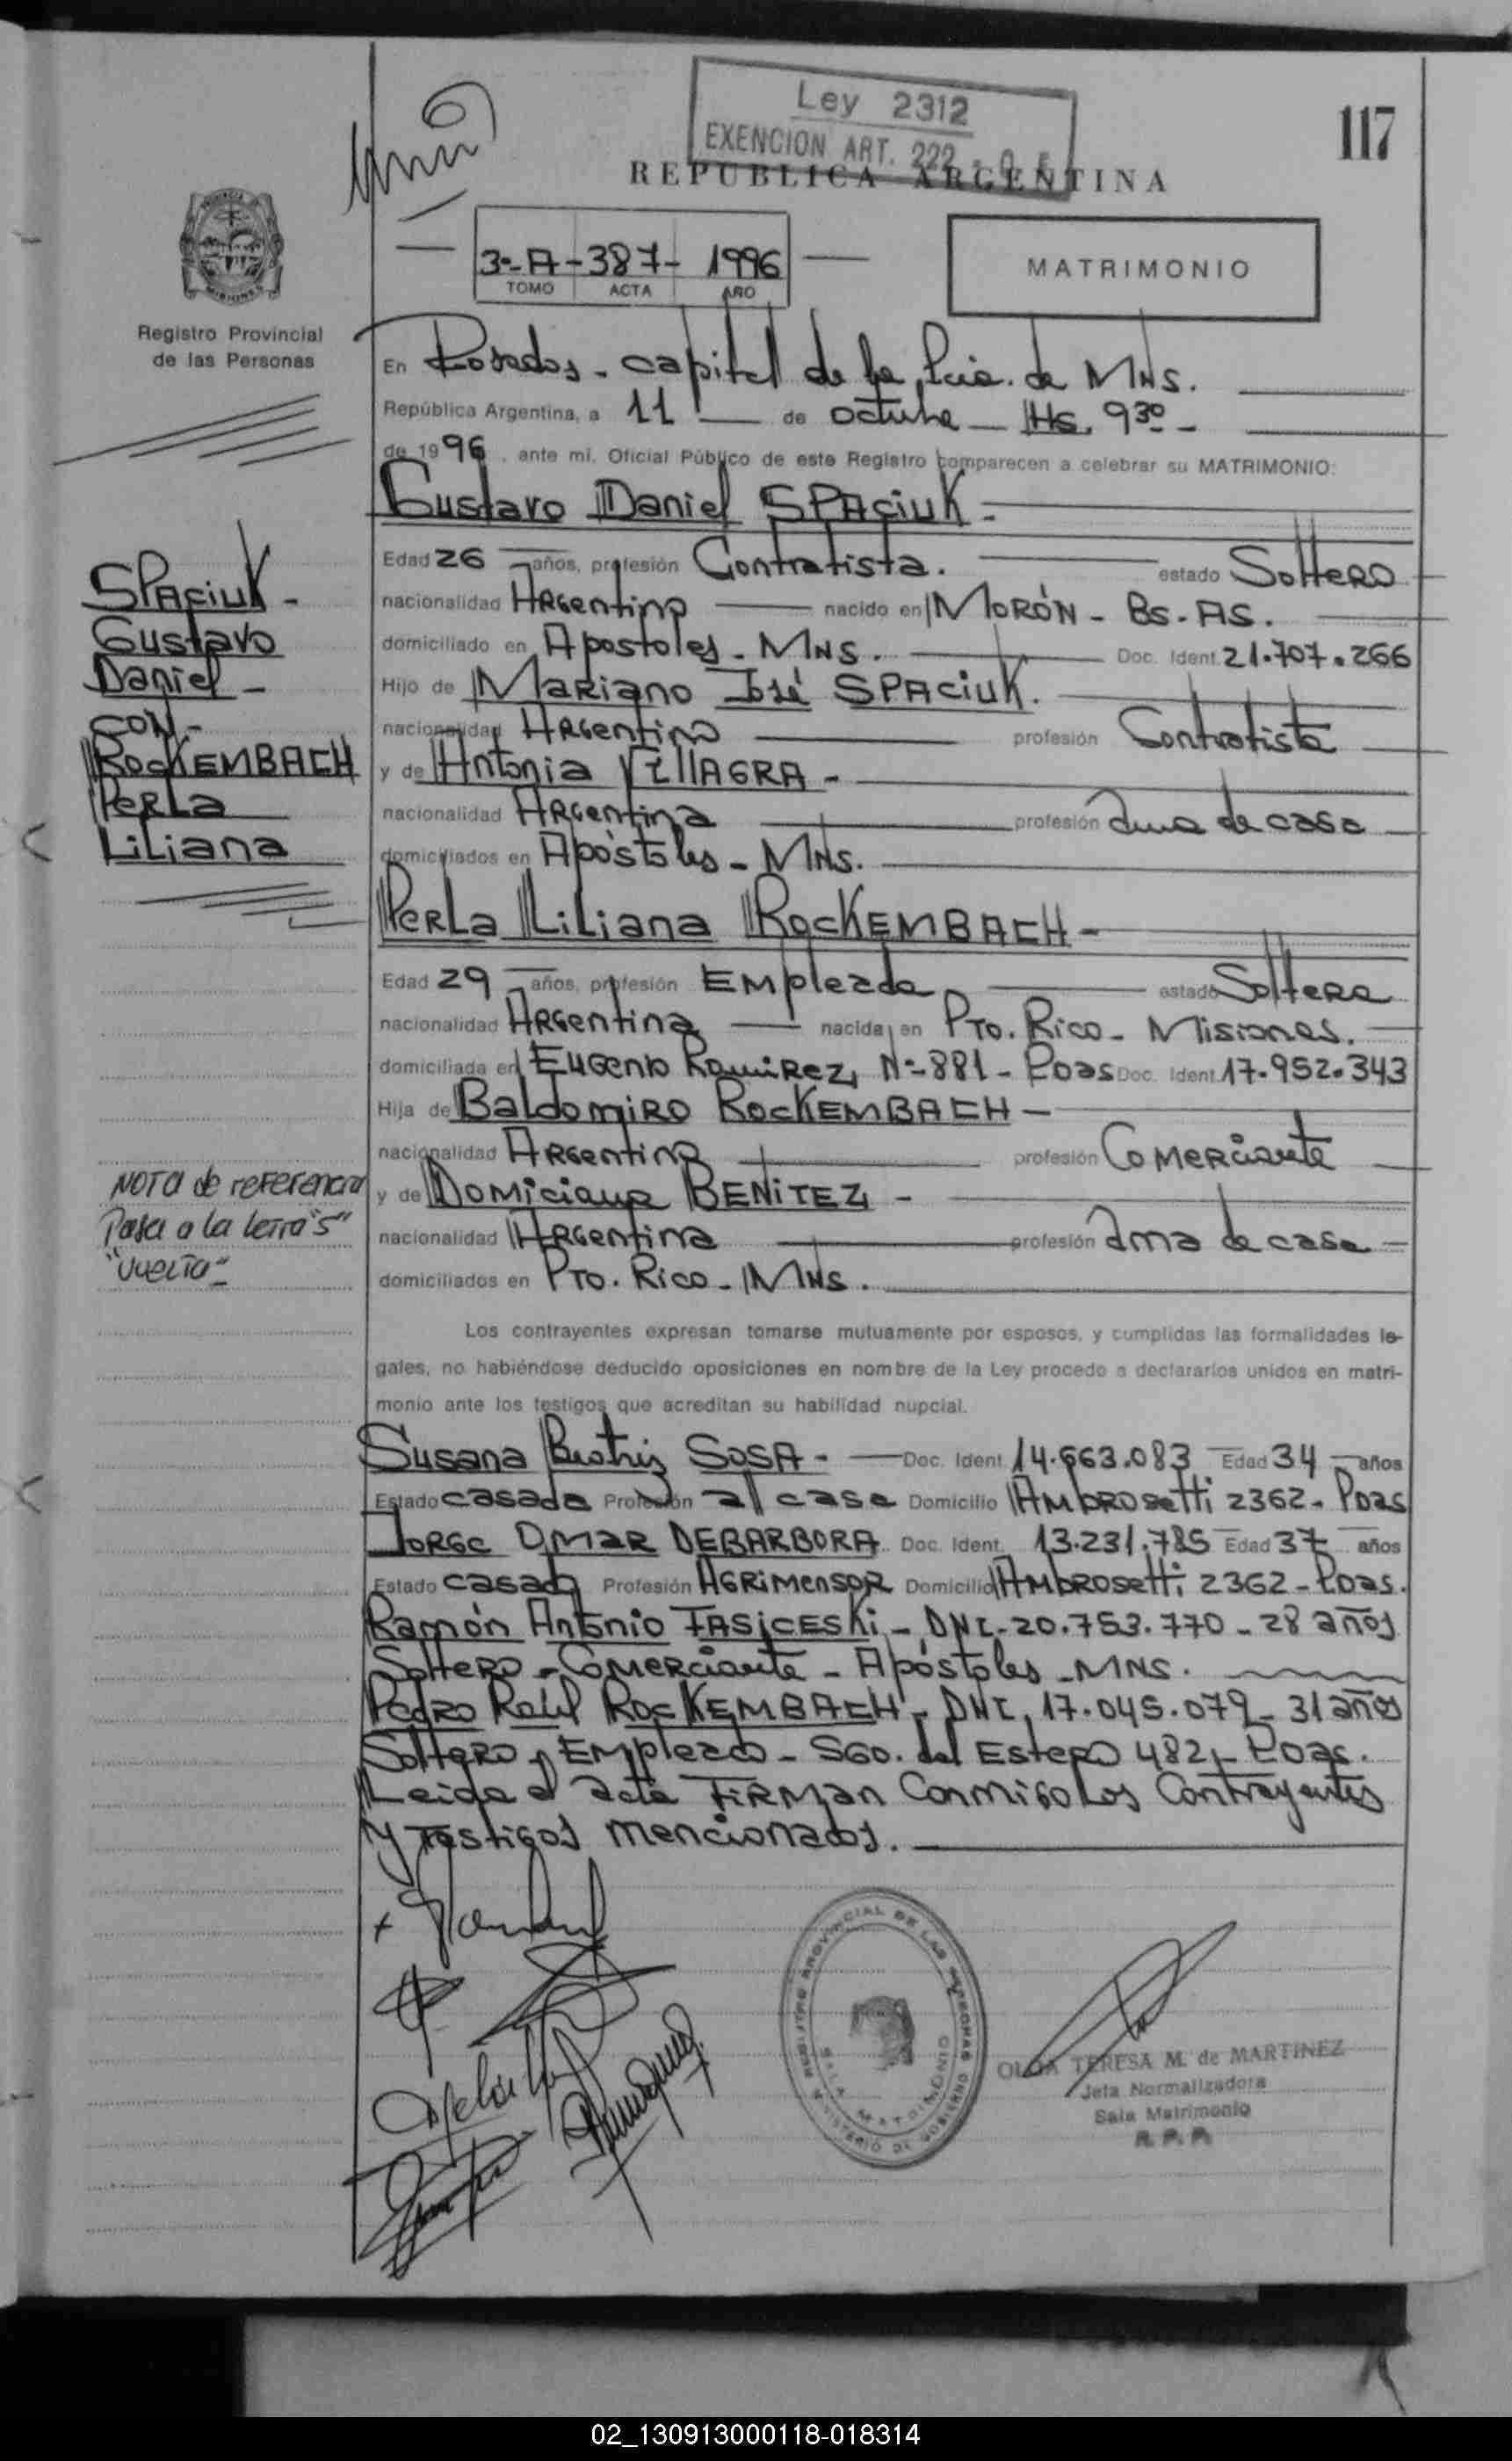 Ley 2312
EXENCION ART. 222 - 
117
REPUBLICA ARGENTINA
3º-A-387-1996
TOMO ACTA AÑO
MATRIMONIO
Registro Provincial
de las Personas
En Posadas - capital de la Pcia. de MNS.
República Argentina, a 11 de octubre Hs. 9³⁰ -
de 1996, ante mí, Oficial Público de este Registro comparecen a celebrar su MATRIMONIO:
Gustavo Daniel SPACIUK -
Edad 26 años, profesión Contratista. estado Soltero
nacionalidad Argentino nacido en MORÓN - Bs. AS.
domiciliado en Apostoles - MNS. Doc. Ident. 21.707.266
Hijo de Mariano José SPACIUK.
nacionalidad Argentino profesión Contratista
y de Antonia VILLAGRA -
nacionalidad Argentina profesión ama de casa
domiciliados en Apóstoles - MNS.
SPACIUK -
Gustavo
Daniel -
CON -
ROCKEMBACH
Perla
Liliana
Perla Liliana ROCKEMBACH -
Edad 29 años, profesión Empleada estado Soltera
nacionalidad Argentina nacida en Pto. Rico - Misiones.
domiciliada en Eugenio Ramirez, Nº 881 - Poas Doc. Ident. 17.952.343
Hija de Baldomiro ROCKEMBACH -
nacionalidad Argentino profesión Comerciante
y de Domiciana BENITEZ -
nacionalidad Argentina profesión ama de casa
domiciliados en Pto. Rico - MNS.
NOTA de referencia
Pasa a la letra "S"
"Vuelta"
Los contrayentes expresan tomarse mutuamente por esposos, y cumplidas las formalidades le-
gales, no habiéndose deducido oposiciones en nombre de la Ley procedo a declararlos unidos en matri-
monio ante los testigos que acreditan su habilidad nupcial.
Susana Beatriz SOSA - Doc. Ident. 14.663.083 Edad 34 años
Estado casada Profesión a/ casa Domicilio Ambrosetti 2362 - Poas
Jorge Omar DEBARBORA Doc. Ident. 13.231.785 Edad 37 años
Estado casado Profesión Agrimensor Domicilio Ambrosetti 2362 - Poas.
Ramón Antonio IASICESKi - DNI - 20.753.770 - 28 años
Soltero - Comerciante - Apóstoles - MNS.
Pedro Raúl ROCKEMBACH - DNI, 17.045.079 - 31 años
Soltero, Empleado - Sgo. del Estero 482, - Poas.
Leida el acta FIRMAN Conmigo Los Contrayentes
y Testigos mencionados.
REGISTRO PROVINCIAL DE LAS PERSONAS
SALA MATRIMONIO
MINISTERIO DE GOBIERNO
OLGA TERESA M. de MARTINEZ
Jefa Normalizadora
Sala Matrimonio
R. P. P.
02_130913000118-018314